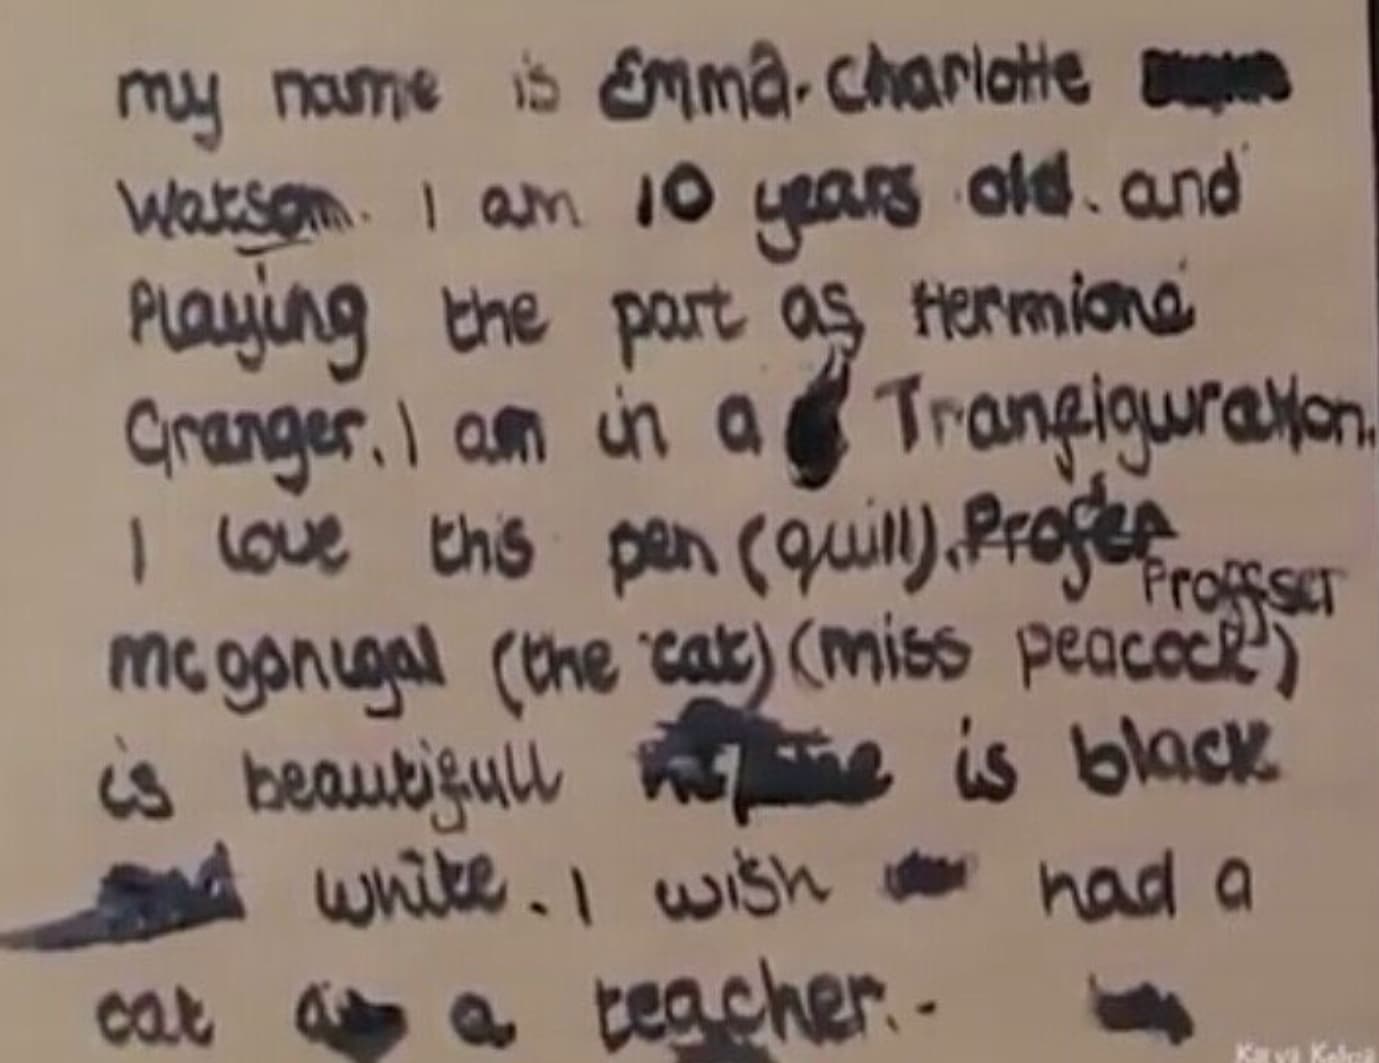 my name is Emma. Charlotte
Watson. I am 10 years old. and
Playing the part as Hermione
Granger. I am in a Tranfiguration.
I love this pen (quill). Profer
Proffser
mcgonigal (the cat) (miss peacock)
is beautifull is black
white. I wish had a
cat a teacher.